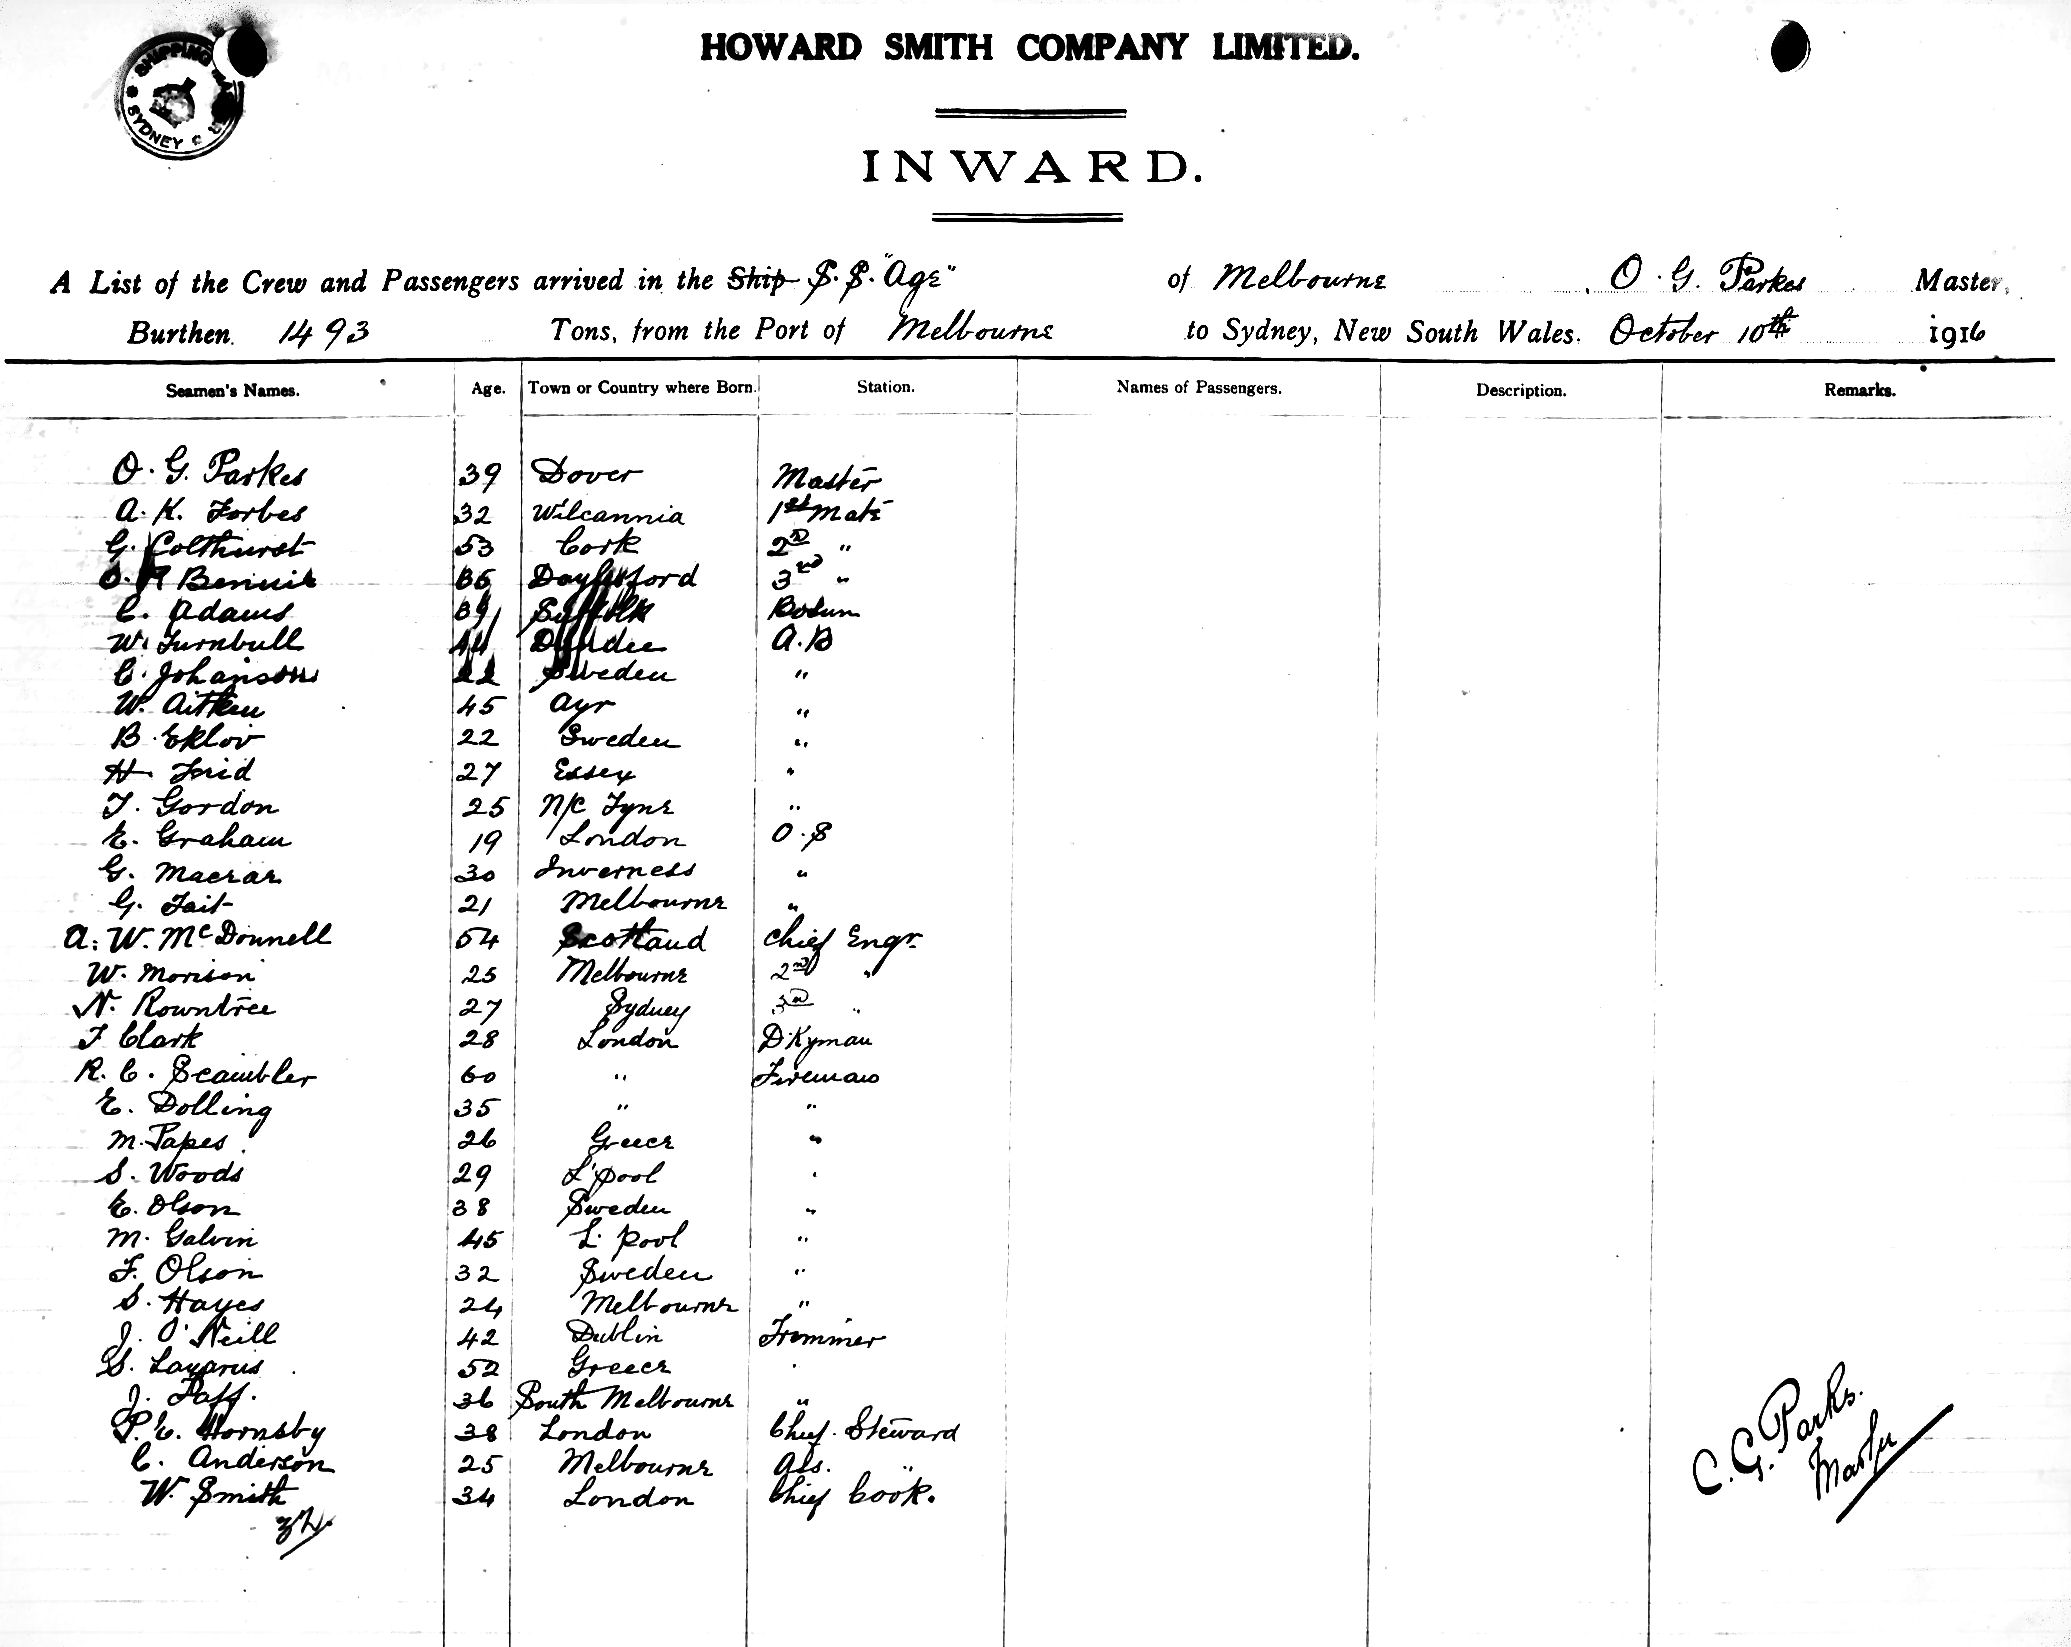 SHIPPING MASTER SYDNEY
HOWARD SMITH COMPANY LIMITED.
INWARD.
A List of the Crew and Passengers arrived in the Ship S.S. "Age" of Melbourne, O. G. Parkes Master,
Burthen 1493 Tons, from the Port of Melbourne to Sydney, New South Wales. October 10th 1916
Seamen's Names. Age. Town or Country where Born. Station. Names of Passengers. Description. Remarks.
O. G. Parkes 39 Dover Master
A. K. Forbes 32 Wilcannia 1st Mate
G. Colthurst 53 Cork 2nd "
O. Bennie 36 Daylesford 3rd "
C. Adams 39 Suffolk Bosun
W. Turnbull 44 Dundee A.B
C. Johanson 22 Sweden "
W. Aitken 45 Ayr "
B. Eklov 22 Sweden "
H. Frid 27 Essex "
T. Gordon 25 N/C Tyne "
E. Graham 19 London O.S
G. Macrae 30 Inverness "
G. Tait 21 Melbourne "
A. W. McDonnell 54 Scotland Chief Engr.
W. Morison 25 Melbourne 2nd "
N. Rowntree 27 Sydney 3rd "
F Clark 28 London D'Kyman
R. C. Scambler 60 " Fireman
E. Dolling 35 " "
M. Papes 26 Greece "
S. Woods 29 L'pool "
E. Olson 38 Sweden "
M. Galvin 45 L'pool "
F. Olson 32 Sweden "
S. Hayes 24 Melbourne "
J. O'Neill 42 Dublin Trimmer
S. Lazarus 52 Greece "
J. Taff. 36 South Melbourne "
P. E. Hornsby 38 London Chief Steward
C. Anderson 25 Melbourne Ass. "
W. Smith 34 London Chief Cook.
32.
C. G. Parks.
Master